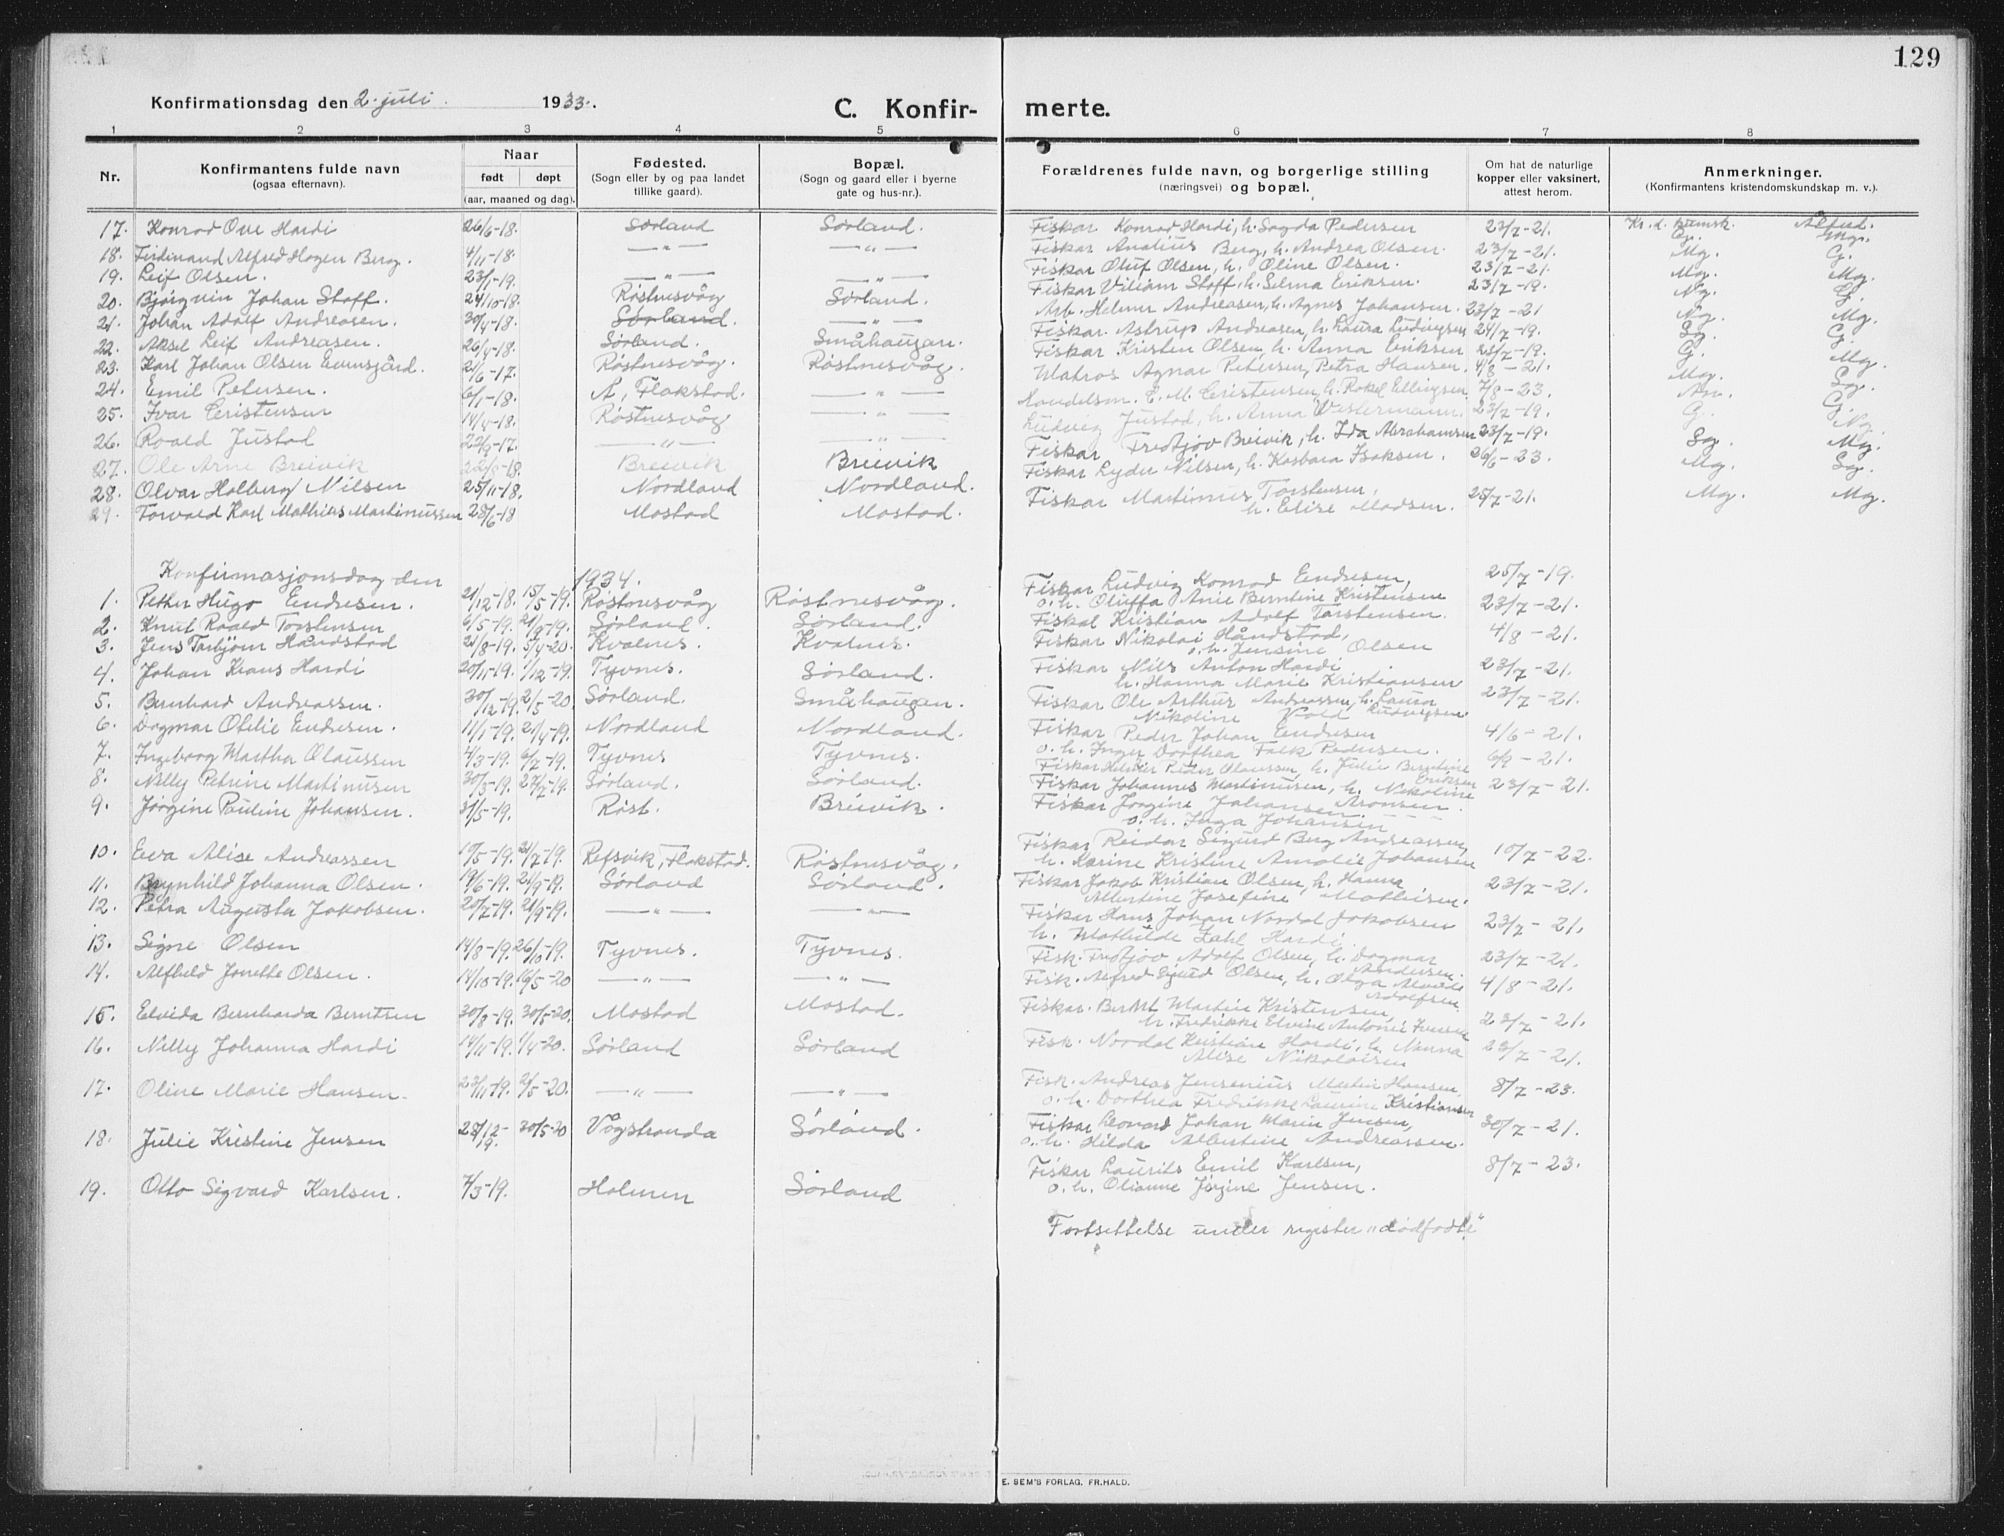 129
Konfirmationsdag den 2. juli 1933.
C. Konfir- merte.
1 2 3 4 5 6 7 8
Nr.
Konfirmantens fulde navn
(ogsaa efternavn).
Naar
født døpt
(aar, maaned og dag).
Fødested.
(Sogn eller by og paa landet
tillike gaard).
Bopæl.
(Sogn og gaard eller i byerne
gate og hus-nr.).
Forældrenes fulde navn, og borgerlige stilling
(næringsvei) og bopæl.
Om hat de naturlige
kopper eller vaksinert,
attest herom.
Anmerkninger.
(Konfirmantens kristendomskundskap m. v.).
17. Konrad Ove Hardi 26/6-18. Sørland Sørland. Fiskar Konrad Hardi, h. Magda Pedersen 23/7-21. Kr. d. kunnsk. Atferd.
18. Ferdinand Alfred Hagen Berg. 4/11-18. —"— —"— Fiskar Anatius Berg, h. Andrea Olsen. 23/7-21. G. Mg.
19. Leif Olsen. 23/1-19. —"— —"— Fiskar Oluf Olsen, h. Oline Olsen. 23/7-21. Mg. G.
20. Bjørgvin Johan Stoff. 24/10-18. Røstnesvåg Sørland. Fiskar Viliam Stoff, h. Selma Eriksen. 23/7-19. Mg. Mg.
21. Johan Adolf Andreasen. 30/4-18. Sørland. —"— Arb. Helmer Andreasen, h. Agnes Johansen. 23/7-21 Ng. G.
22. Aksel Leif Andreasen. 26/4-18. Sørland. Småhaugan. Fiskar Astrup Andreasen, h. Laura Ludvigsen 24/7-19. Ng. Mg.
23. Karl Johan Olsen Evensgård. 21/6-17. Røstnesvåg. Røstnesvåg. Fiskar Kristen Olsen, h. Anna Eriksen 23/7-19. Sg. G.
24. Emil Petersen. 6/1-18. Å, Flakstad. —"— Matros Agnar Petersen, Petra Hansen. 4/8-21. G. Mg.
25. Ivar Cristensen 14/4-18. Røstnesvåg —"— Handelsm. C. M. Cristensen, h. Rakel Ellingsen 7/8-23. Mg. Sg.
26. Roald Justad 22/9-17. —"— —"— Ludvig Justad, h. Anna Westermann. 23/7-19. G.
27. Ole Arne Breivik 22/8-18. Breivik Breivik Fiskar Fredtjov Breivik, h. Ida Abrahamsen 23/7-19. G. Ng.
28. Olvar Holberg Nilsen 25/11-18. Nordland Nordland. Fiskar Lyder Nilsen, h. Karbara Isaksen. 26/6-23. Sg. Mg.
29. Torvald Karl Mathias Martinussen 28/6-18 Mostad Mostad. Fiskar Martinus Torstensen, 25/7-21. Mg. Mg.
h. Elise Madsen.
Konfirmasjonsdag den 1934.
1. Petter Hugo Endresen. 21/12-18. 15/5-19. Røstnesvåg Røstnesvåg. Fiskar Ludvig Konrad Endresen, 25/7-19.
o. h. Oluffa Anie Berntine Kristensen
2. Knut Roald Torstensen 6/5-19. 21/9-19. Sørland. Sørland. Fiskal Kristian Adolf Torstensen 23/7-21.
3. Jens Torbjørn Håndstad 21/8-19. 5/4-20. Kvalnes. Kvalnes. Fiskar Nikolai Håndstad, 4/8-21.
o. h. Jensine Olsen
4. Johan Klaus Hardi 20/11-19. 1/12-19. Tyvnes. Sørland. Fiskar Nils Anton Hardi 23/7-21.
h. Hanna Marie Kristiansen
5. Bernhard Andreassen. 30/12-19. 2/5-20 Sørland. Småhaugen. Fiskar Ole Arthur Andreassen, h. Laura 23/7-21.
Nikoline Vold Ludvigsen
6. Dagmar Otilie Endresen. 11/1-19. 21/4-19. Nordland Nordland. Fiskar Peder Johan Endresen 4/6-21.
o. h. Inger Dorthea Falk Pedersen.
7. Ingeborg Martha Olaussen 4/3-19. 6/7-19. Tyvnes Tyvnes. Fiskar Helmer Peder Olaussen, h. Julie Berntine Eriksen 6/9-21.
8. Nilly Petrine Martinusen 30/3-19. 27/7-19. Sørland. Sørland. Fiskar Johannes Martinusen, h. Nikoline Aronsen. 23/7-21.
9. Jørgine Pauline Johansen. 31/5-19. Røst. Breivik. Fiskar Jørgine Johansen
o. h. Inga Johansen
10. Eva Alise Andreassen 19/5-19. 21/7-19. Refsvik, Flakstad. Røstnesvåg. Fiskar Reidar Sigurd Berg Andreassen, 10/7-22.
h. Karine Kristine Amalie Johansen
11. Brynhild Johanna Olsen. 19/6-19. 21/9-19. Sørland Sørland. Fiskar Jakob Kristian Olsen, h. Hanna 23/7-21.
Albertine Josefine Mathisen.
12. Petra Augusta Jakobsen. 20/7-19. 21/9-19. —"— —"— Fiskar Hans Johan Nordal Jakobsen 23/7-21.
h. Mathilde Zahl Hardi
13. Signe Olsen 14/8-19. 26/10-19. Tyvnes. Tyvnes. Fisk. Fredtjov Adolf Olsen, h. Dagmar Andersen. 23/7-21.
14. Alfhild Jonette Olsen. 14/10-19. 16/5-20 —"— —"— Fisk. Alfred Sigurd Olsen, h. Olga Alvilde Adolfsen 4/8-21.
15. Elvida Bernharda Berntsen 30/8-19. 30/5-20. Mostad Mostad. Fiskar. Berht Martine Kristensen, 23/7-21.
h. Fredrikke Elvine Antonie Iversen
16. Nilly Johanna Hardi 14/11-19. 1/4-20. Sørland Sørland Fisk. Nordal Kristian Hardi, h. Nanna 23/7-21.
Alise Nikolaisen
17. Oline Marie Hansen. 23/11-19. 2/5-20. —"— —"— Fisk. Andreas Jensenius Martin Hansen, 8/7-23.
o. h. Dorthea Fredrikke Laurine Kristiansen
18. Julie Kristine Jensen 28/12-19. 30/5-20 Vågstranda Sørland. Fiskar Leonard Johan Marin Jensen, 30/7-21.
o. h. Hilda Albertine Andreassen.
19. Otto Sigvard Karlsen. 7/3-19. Holmen Sørland Fiskar Laurits Emil Karlsen, 8/7-23.
o. h. Olianne Jørgine Jensen.
Fortsettelse under register "dødfødte"
E. SEM'S FORLAG. FR.HALD.